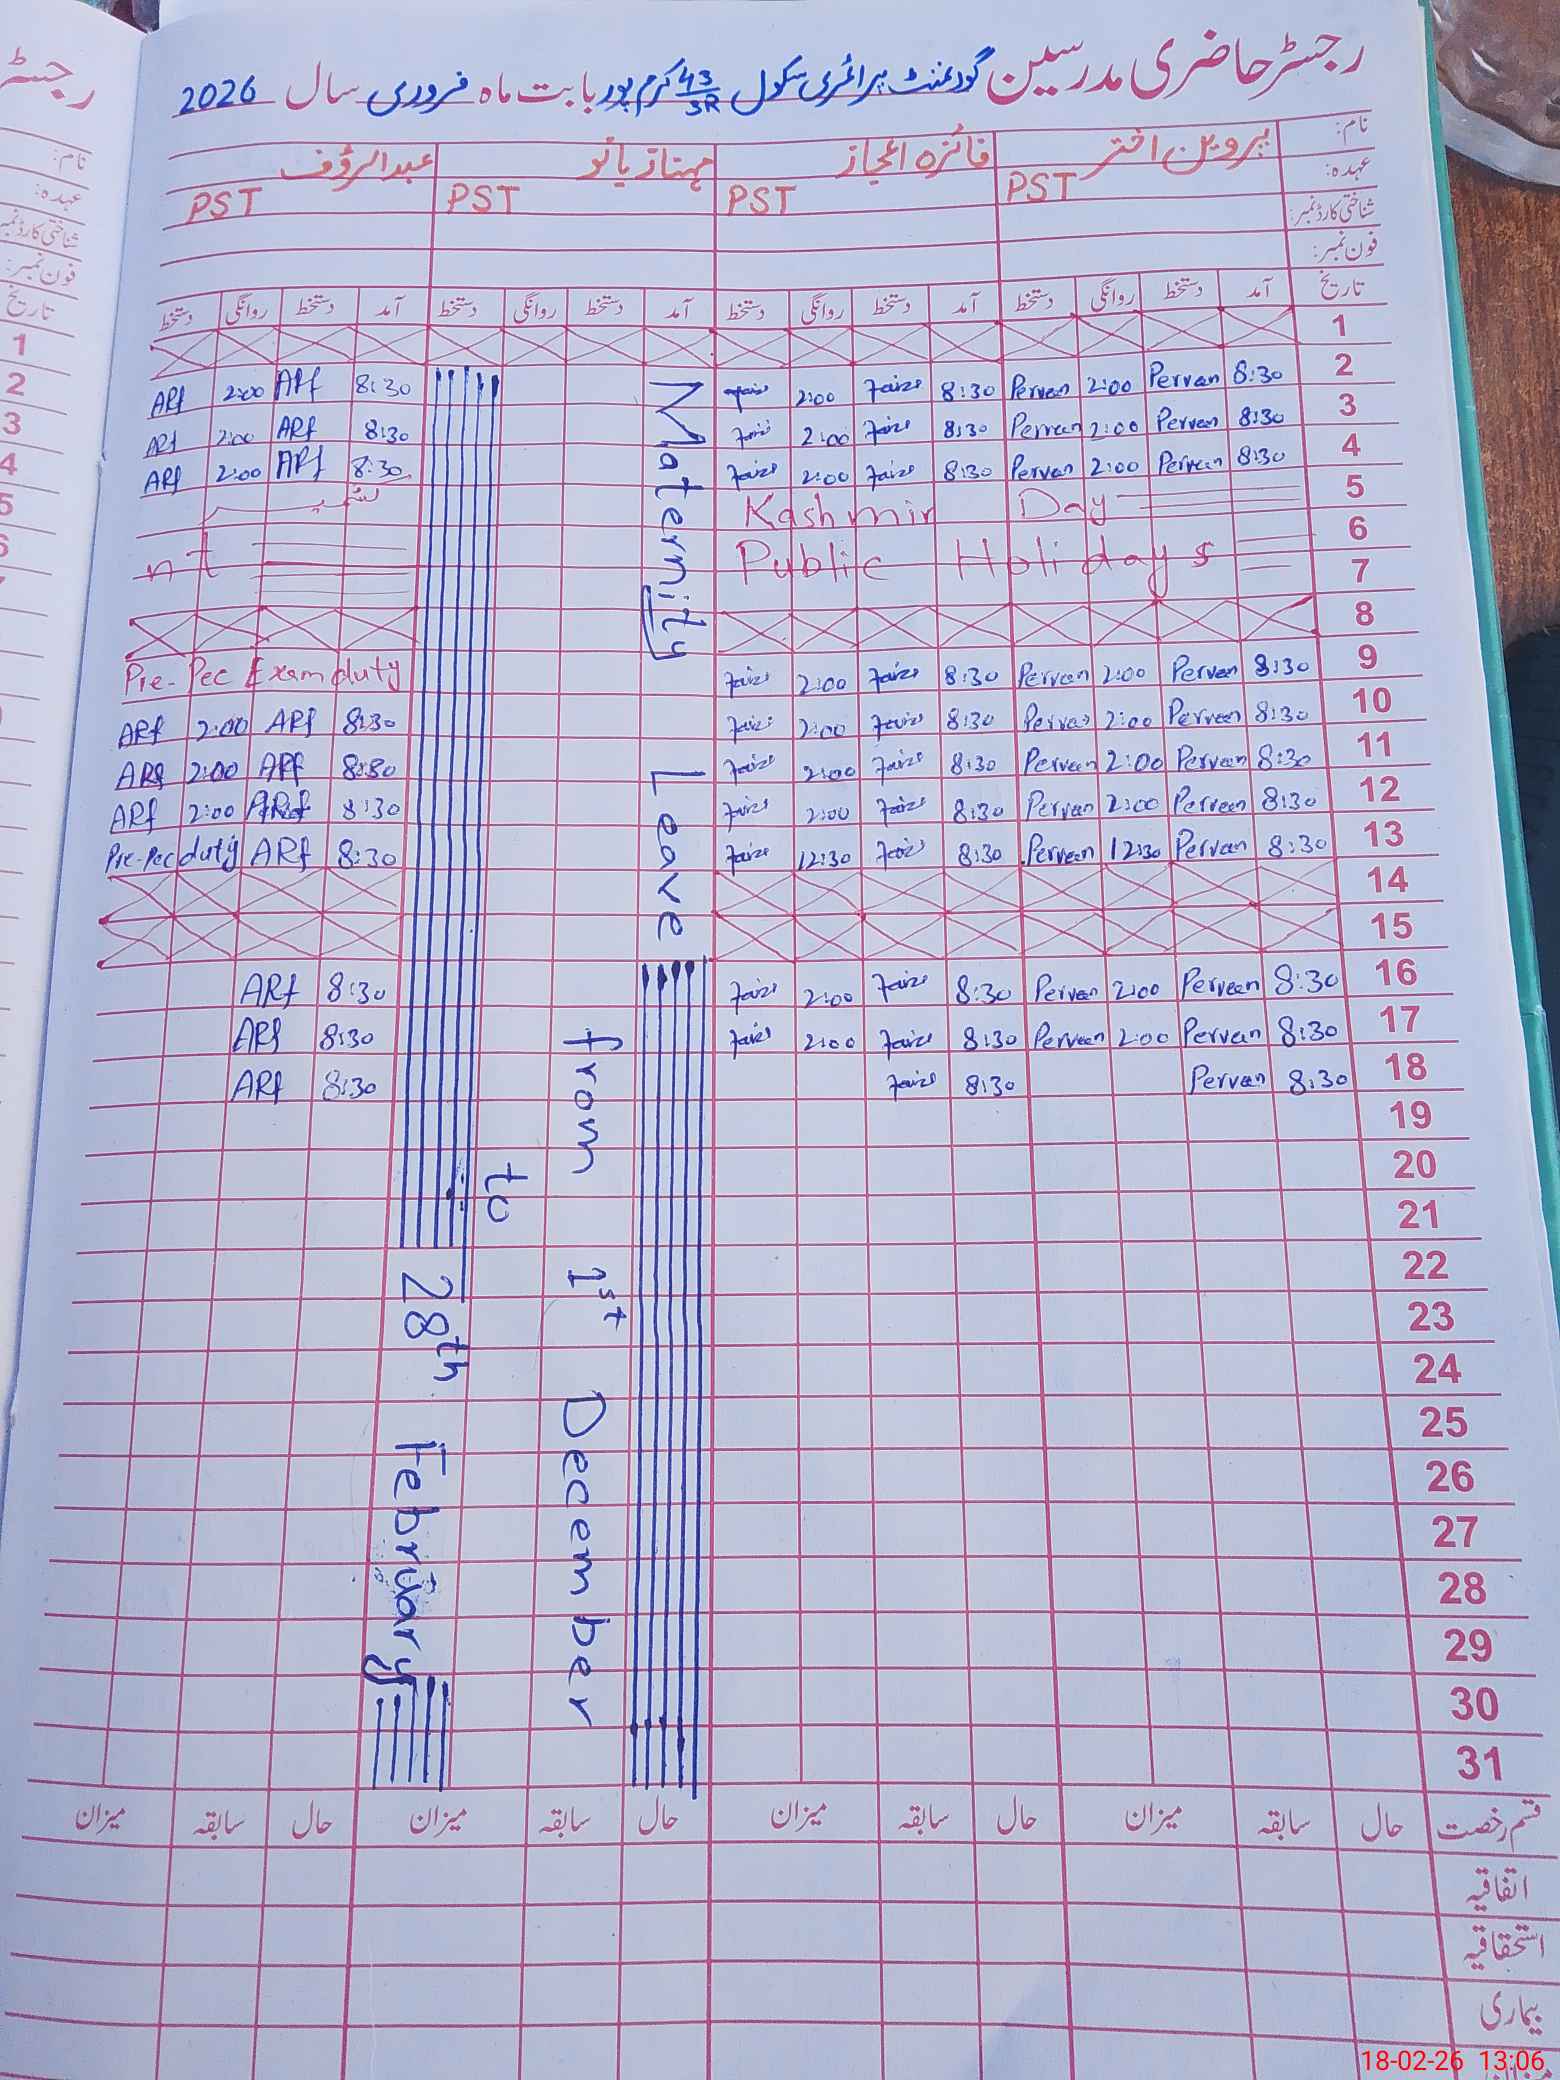 رجسٹر حاضری مدرسین گورنمنٹ پرائمری سکول 43/SR کرم پور بابت ماہ فروری سال 2026
نام: پروین اختر فائزہ اعجاز مہناز بانو عبدالرؤف
عہدہ: PST PST PST PST
شناختی کارڈ نمبر:
فون نمبر:
تاریخ آمد دستخط روانگی دستخط آمد دستخط روانگی دستخط آمد دستخط روانگی دستخط آمد دستخط روانگی دستخط
1
2 8:30 Pervan 2:00 Pervan 8:30 Faize 2:00 Faize 8:30 ARf 2:00 ARf
3 8:30 Perveen 2:00 Perveen 8:30 Faize 2:00 Faize 8:30 ARf 2:00 ARf
4 8:30 Perveen 2:00 Pervan 8:30 Faize 2:00 Faize 8:30 ARf 2:00 ARf
5 Kashmir Day
6 Public Holidays
7
8
9 8:30 Perveen 2:00 Perveen 8:30 Faize 2:00 Faize Pre-Pec Exam duty
10 8:30 Perveen 2:00 Pervas 8:30 Faize 2:00 Faize 8:30 ARf 2:00 ARf
11 8:30 Perveen 2:00 Perveen 8:30 Faize 2:00 Faize 8:30 ARf 2:00 ARf
12 8:30 Perveen 2:00 Pervan 8:30 Faize 2:00 Faize 8:30 ARf 2:00 ARf
13 8:30 Pervan 12:30 Perveen 8:30 Faize 12:30 Faize 8:30 ARf Pre-Pec duty
14
15
16 8:30 Perveen 2:00 Pervan 8:30 Faize 2:00 Faize 8:30 ARf
17 8:30 Pervan 2:00 Perveen 8:30 Faize 2:00 Faize 8:30 ARf
18 8:30 Pervan 8:30 Faize 8:30 ARf
19
20
21
22
23
24
25
26
27
28
29
30
31
Maternity Leave
from 1st December
to
28th February
قسم رخصت حال سابقہ میزان حال سابقہ میزان حال سابقہ میزان حال سابقہ میزان
اتفاقیہ
استحقاقیہ
بیماری
18-02-26 13:06
رجسٹر
نام:
عہدہ:
شناختی کارڈ نمبر
فون نمبر:
تاریخ
1
2
3
4
5